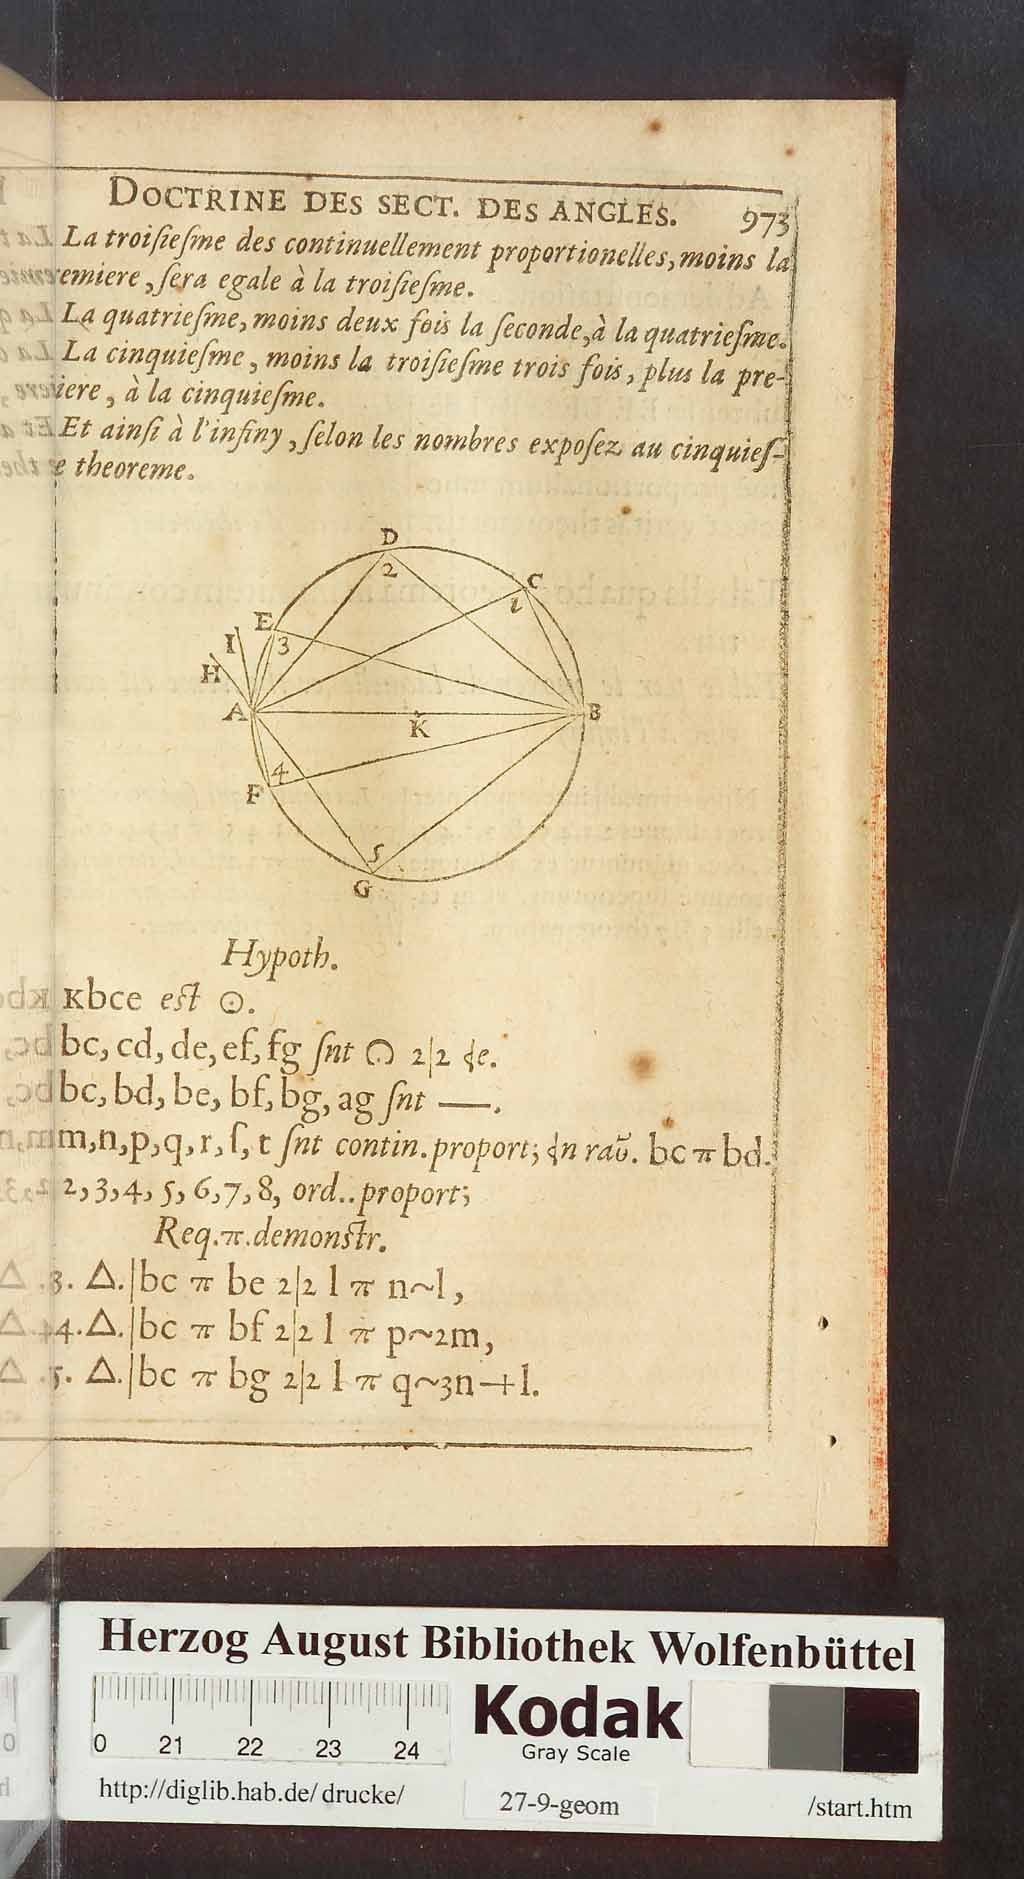 DOCTRINE DES SECT. DES ANGLES. 973
La troiſieſme des continuellement proportionelles, moins la
emiere, ſera egale à la troiſieſme.
La quatrieſme, moins deux fois la ſeconde, à la quatrieſme.
La cinquieſme, moins la troiſieſme trois fois, plus la pre-
iere, à la cinquieſme.
Et ainſi à l'infiny, ſelon les nombres expoſez au cinquieſ-
e theoreme.
D
2
C
1
E
I
3
H
A
K
B
4
F
5
G
Hypoth.
Kbce eſt ⊙.
bc, cd, de, ef, fg ſnt 2|2
bc, bd, be, bf, bg, ag ſnt —.
m, n, p, q, r, ſ, t ſnt contin. proport; bc π bd.
2, 3, 4, 5, 6, 7, 8, ord.. proport;
Req. π. demonſtr.
3. △.|bc π be 2|2 l π n~l,
4. △.|bc π bf 2|2 l π p~2m,
5. △.|bc π bg 2|2 l π q~3n+l.
Herzog August Bibliothek Wolfenbüttel
0 21 22 23 24
Kodak
Gray Scale
http://diglib.hab.de/drucke/ 27-9-geom /start.htm